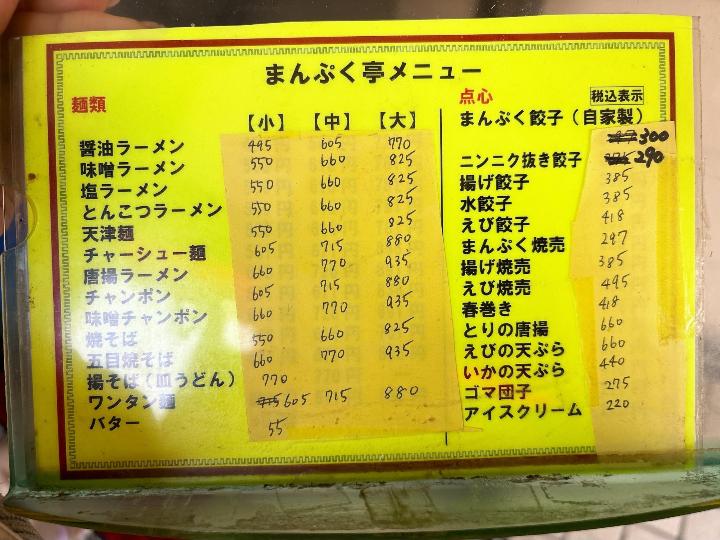 まんぷく亭メニュー
麺類
【小】 【中】 【大】
醤油ラーメン 495 605 770
味噌ラーメン 550 660 825
塩ラーメン 550 660 825
とんこつラーメン 550 660 825
天津麺 550 660 825
チャーシュー麺 605 715 880
唐揚ラーメン 660 770 935
チャンポン 605 715 880
味噌チャンポン 660 770 935
焼そば 550 660 825
五目焼そば 660 770 935
揚そば(皿うどん) 770
ワンタン麺 605 715 880
バター 55
点心 税込表示
まんぷく餃子(自家製)
300
ニンニク抜き餃子 290
揚げ餃子 385
水餃子 385
えび餃子 418
まんぷく焼売 297
揚げ焼売 385
えび焼売 495
春巻き 418
とりの唐揚 660
えびの天ぷら 660
いかの天ぷら 440
ゴマ団子 275
アイスクリーム 220